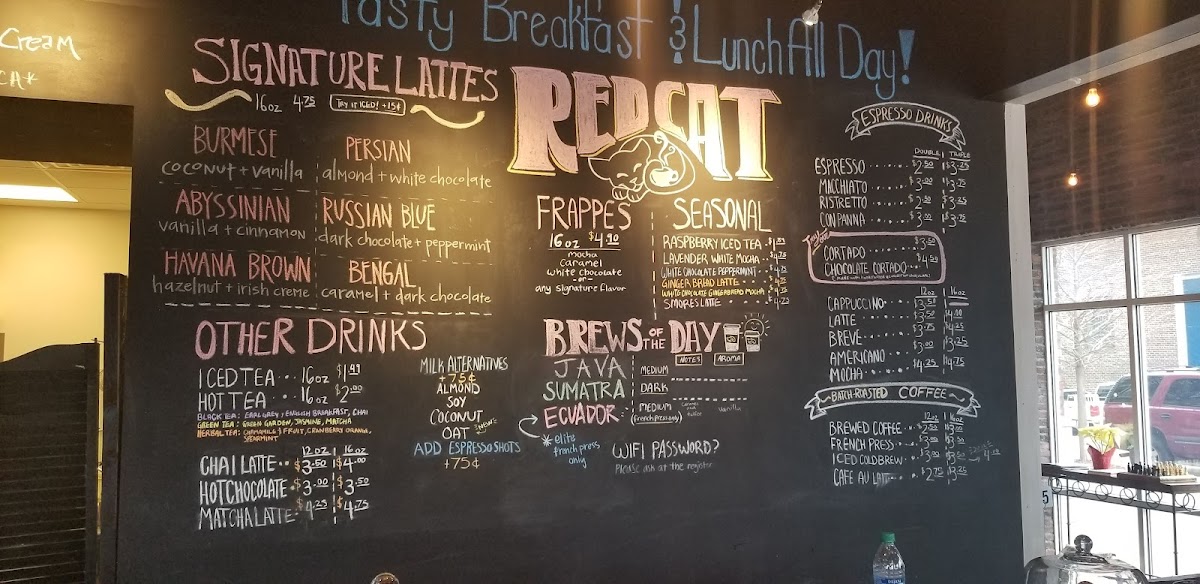 Tasty Breakfast & Lunch All Day!
Cream
SIGNATURE LATTES
16oz 4.75 TRY IT ICED! +15¢
BURMESE
coconut + vanilla
PERSIAN
almond + white chocolate
ABYSSINIAN
vanilla + cinnamon
RUSSIAN BLUE
dark chocolate + peppermint
HAVANA BROWN
hazelnut + irish creme
BENGAL
caramel + dark chocolate
RED CAT
FRAPPES
16oz $4.90
mocha
caramel
white chocolate
or
any signature flavor
SEASONAL
RASPBERRY ICED TEA
LAVENDER WHITE MOCHA
WHITE CHOCOLATE PEPPERMINT
GINGERBREAD LATTE
WHITE CHOCOLATE GINGERBREAD MOCHA
SMORES LATTE
ESPRESSO DRINKS
DOUBLE TRIPLE
ESPRESSO $2.50 $3.25
MACCHIATO $3.00 $3.75
RISTRETTO $2.50 $3.25
CON PANNA $3.00 $3.75
CORTADO $3.50
CHOCOLATE CORTADO
12oz 16oz
CAPPUCCINO
LATTE
BREVE
AMERICANO
MOCHA
BATCH-ROASTED COFFEE
12oz 16oz
BREWED COFFEE
FRENCH PRESS
ICED COLD BREW
CAFE AU LAIT $2.75 $3.25
OTHER DRINKS
ICED TEA 16oz $1.99
HOT TEA 16oz $2.00
BLACK TEA: EARL GREY, ENGLISH BREAKFAST, CHAI
GREEN TEA: GREEN GARDEN, JASMINE, MATCHA
HERBAL TEA: CHAMOMILE & FRUIT, CRANBERRY ORANGE, SPEARMINT
12oz 16oz
CHAI LATTE $3.50 $4.00
HOT CHOCOLATE $3.00 $3.50
MATCHA LATTE $4.25 $4.75
MILK ALTERNATIVES
+75¢
ALMOND
SOY
COCONUT
OAT
ADD ESPRESSO SHOTS
+75¢
BREWS OF THE DAY
NOTES AROMA
JAVA MEDIUM
SUMATRA DARK
ECUADOR MEDIUM
(french press only) vanilla
*elite french press only
WIFI PASSWORD?
Please ask at the register
5